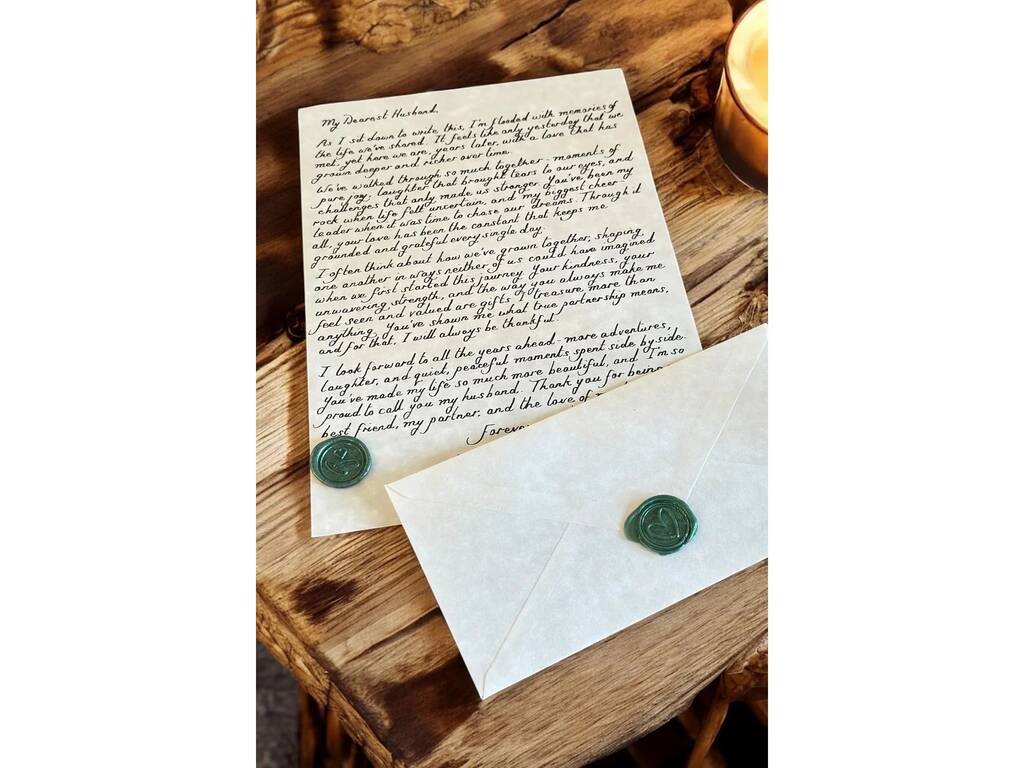 My Dearest Husband,
As I sit down to write this, I'm flooded with memories of
the life we've shared. It feels like only yesterday that we
met, yet here we are, years later, with a love that has
grown deeper and richer over time.
We've walked through so much together - moments of
pure joy, laughter that brought tears to our eyes, and
challenges that only made us stronger. You've been my
rock when life felt uncertain, and my biggest cheer-
leader when it was time to chase our dreams. Through it
all, your love has been the constant that keeps me
grounded and grateful every single day.
I often think about how we've grown together, shaping
one another in ways neither of us could have imagined
when we first started this journey. Your kindness, your
unwavering strength, and the way you always make me
feel seen and valued are gifts I treasure more than
anything. You've shown me what true partnership means,
and for that, I will always be thankful.
I look forward to all the years ahead - more adventures,
laughter, and quiet, peaceful moments spent side by side.
You've made my life so much more beautiful, and I'm so
proud to call you my husband. Thank you for being
best friend, my partner, and the love of
Forever